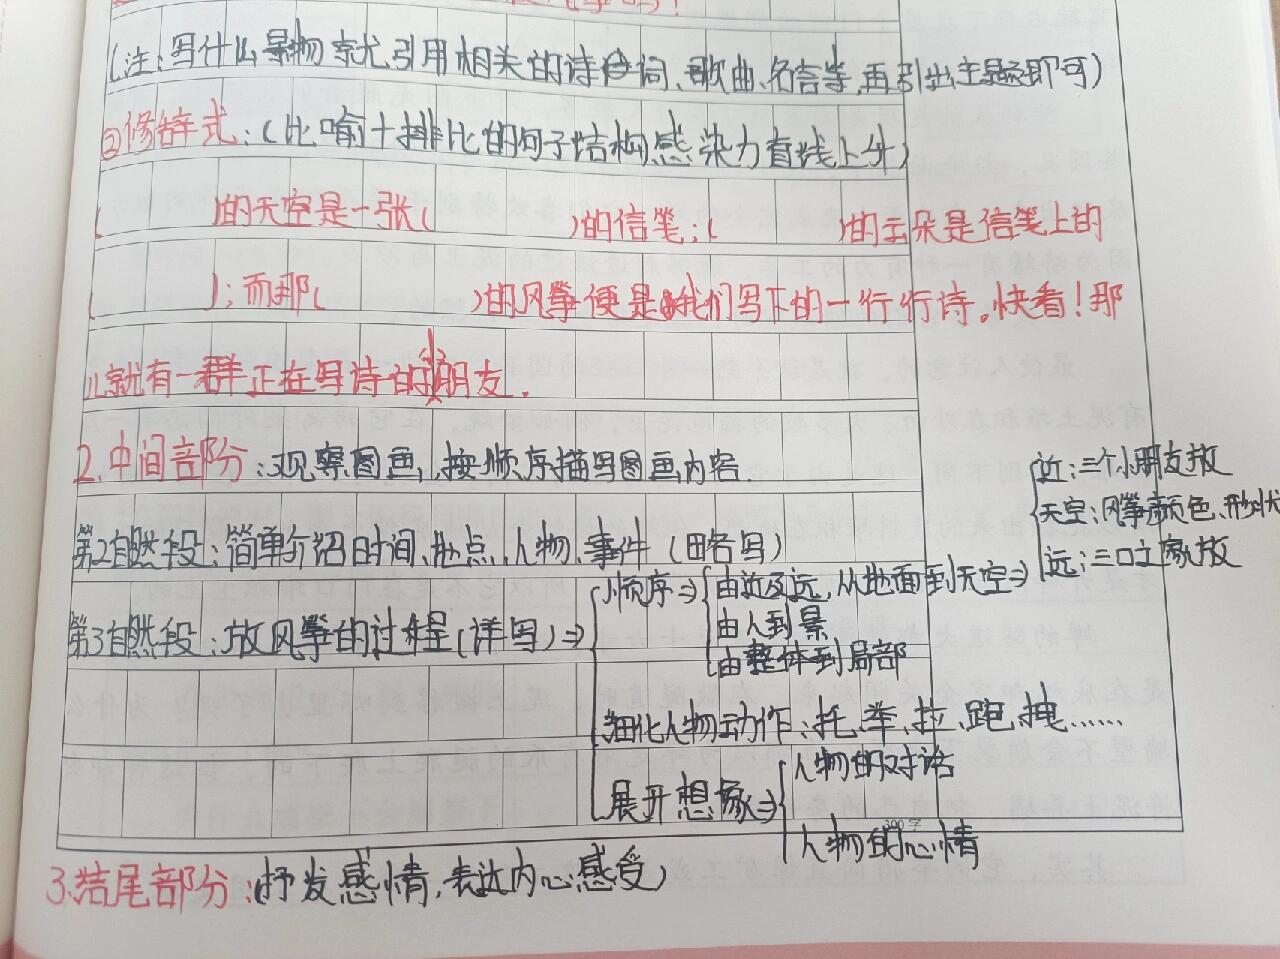 (注:写什么景物就引用相关的诗词、歌曲、名言等,再引出主题即可)
②修辞式:(比喻+排比的句子结构感染力直线上升)
(        )的天空是一张(        )的信笺;(        )的云朵是信笺上的
(        );而那(        )的风筝便是我们写下的一行行诗。快看!那
儿就有一群正在写诗的小朋友.
2.中间部分:观察图画,按顺序描写图画内容.
第2自然段:简单介绍时间、地点、人物、事件(略写)
第3自然段:放风筝的过程(详写)⇒
顺序⇒
由近及远,从地面到天空⇒
近:三个小朋友放
天空:风筝颜色、形状
远:三口之家放
由人到景
由整体到局部
细化人物动作:托、举、拉、跑、拽……
展开想象⇒
人物的对话
人物的心情
300字
3.结尾部分:(抒发感情,表达内心感受)